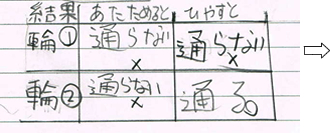 結果 あたためると ひやすと
輪① 通らない × 通らない ×
輪② 通らない × 通る。